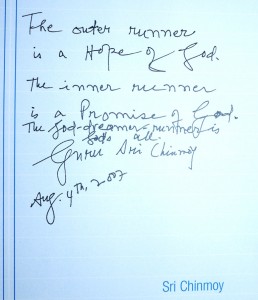 The outer runner
is a Hope of God.
The inner runner
is a Promise of God.
The God-dreamer-runner is
God's all.
Guru Sri Chinmoy
Aug. 4th, 2007
Sri Chinmoy